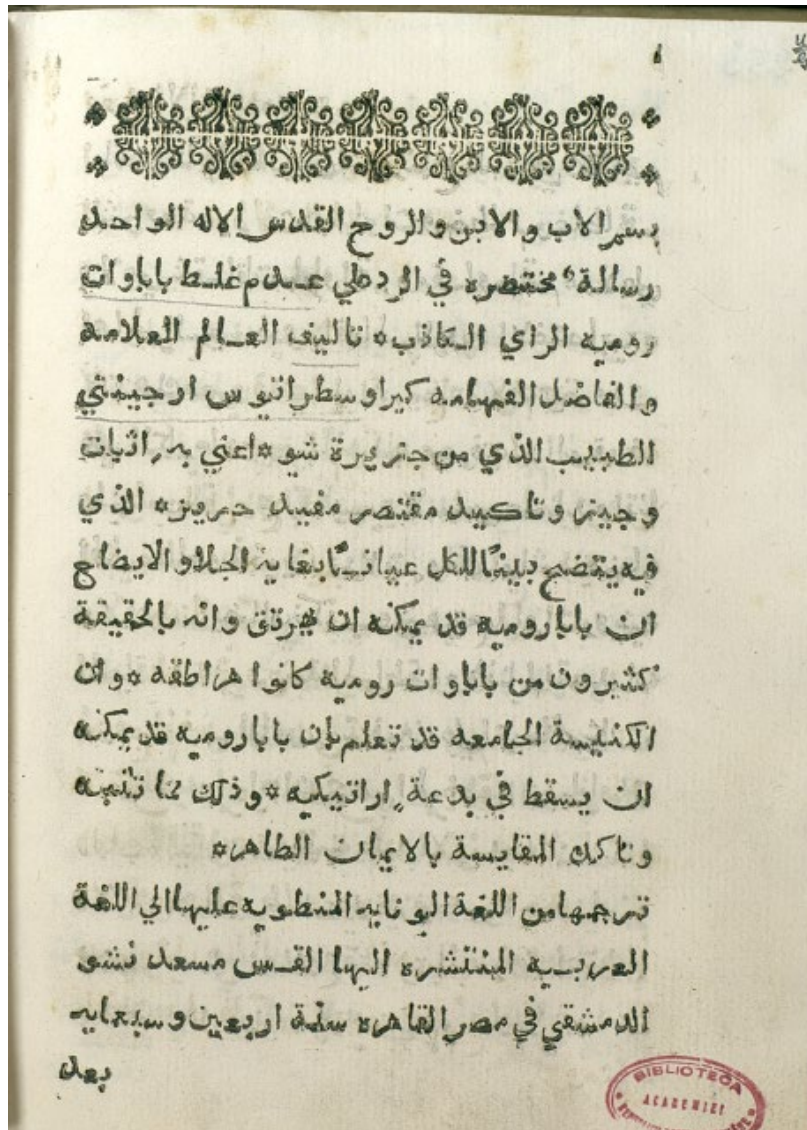 ١
بسم الاب والابن والروح القدس الاله الواحد
رسالة مختصره في الرد علي عدم غلط باباوات
روميه الراي الكاذب * تاليف العالم العلامه
والفاضل الفهامه كيراوسطراتيوس ارجينتي
الطبيب الذي من جزيرة شو * اعني به اثبات
وجيز وتاكيد مقتصر مفيد حريز * الذي
فيه يتضح بينًا للكل عيانًا بغاية الجلاو الايضاح
ان بابا روميه قد يمكنه ان يهرتق وانه بالحقيقة
كثيرون من باباوات روميه كانوا هراطقه * وان
الكنيسة الجامعه قد تعلم بان بابا روميه قد يمكنه
ان يسقط في بدعةٍ اراتيكيه * وذلك مما تثبته
وتاكده المقايسة بالايمان الظاهر *
ترجمها من اللغة اليونانيه المنطويه عليها الي اللغة
العربيه المنتشره اليها القس مسعد نشو
الدمشقي في مصر القاهره سنة اربعين وسبعمايه
بعد
BIBLIOTECA
ACADEMIEI